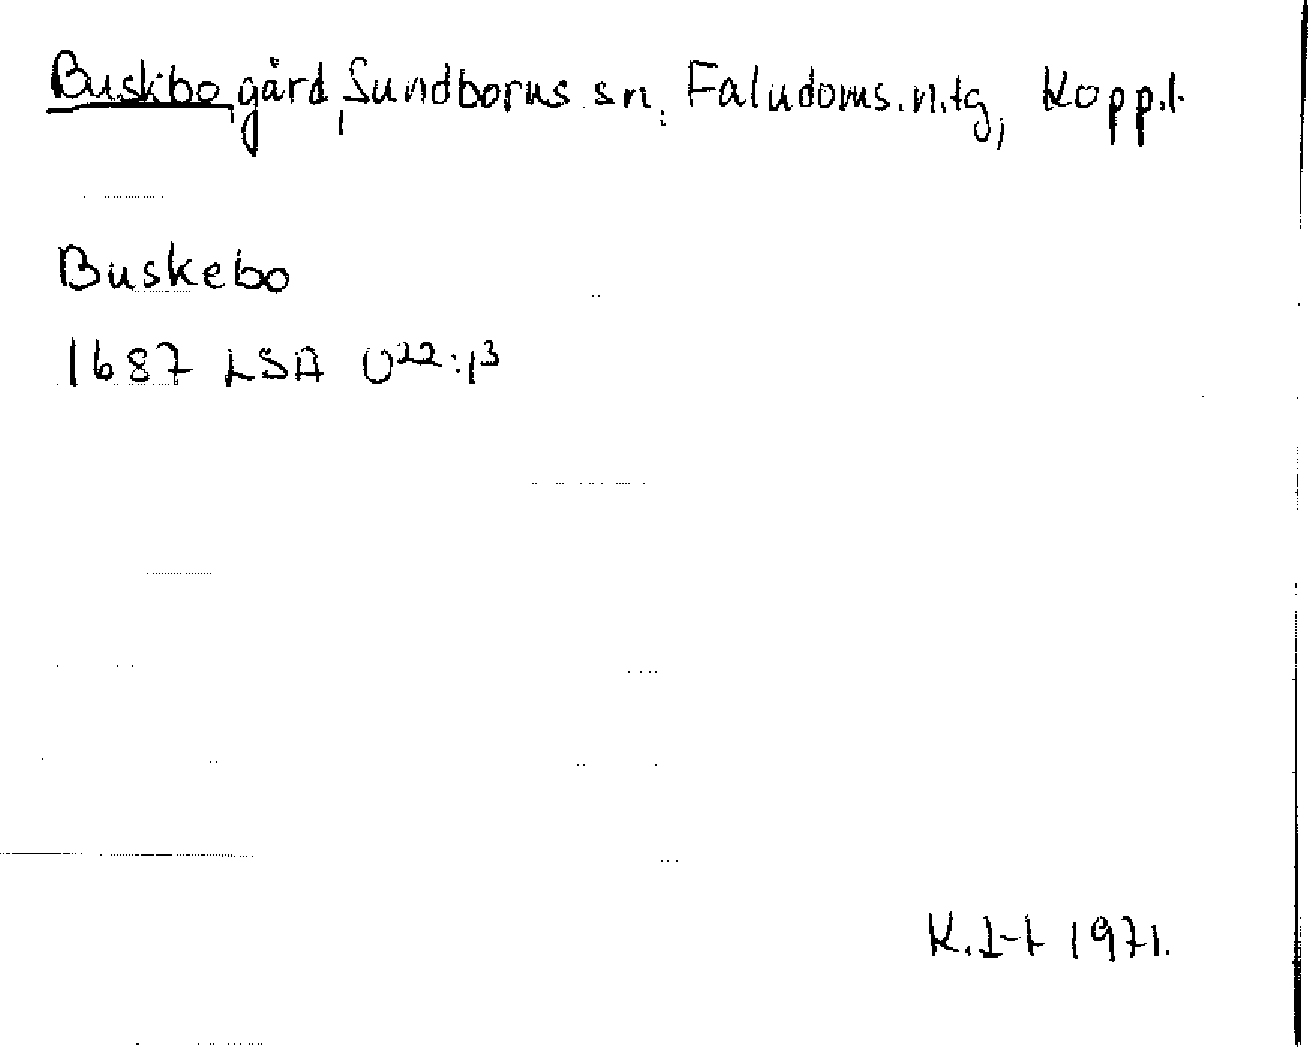 Buskbo, gård, Sundborns sn, Faludoms.n.tg, Kopp.l.
Buskebo
1687 LSA U22:13
K.I-t 1971.